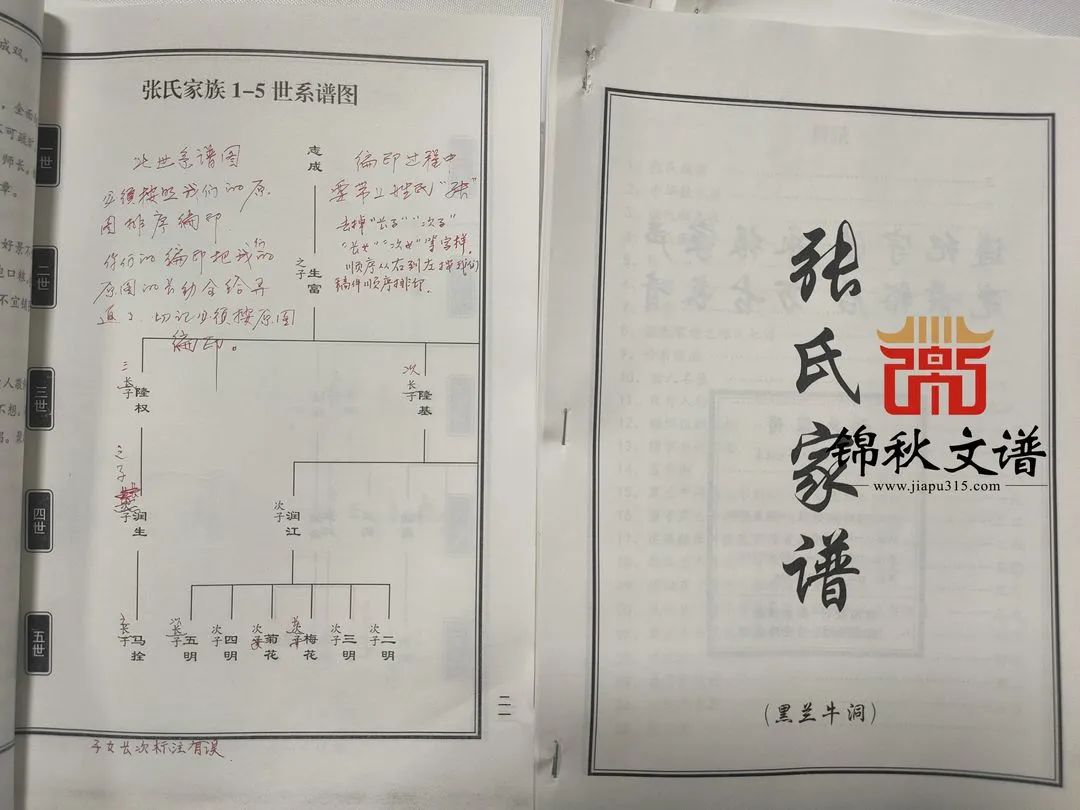 张氏家族1-5世系谱图
一世
二世
三世
四世
五世
此世系谱图
必须按照我们的原
图排序编印.
你们的编印把我们的
原图的长幼全给弄
道了.切记必须按原图
编印。
编印过程中
要带上姓氏“张”
去掉“长子”“次子”
“长女”“次女”等字样.
顺序从右到左按我们
稿件顺序排印.
志成
之子 生富
三 长子 隆权
次 长子 隆基
之子
润生
次子 润江
长子 马拴
次 长子 五明
次子 四明
次 菊花
梅花
次子 三明
次子 二明
二一
子女长次标注有误
成双。
全面
不可疏
师长。
章。
好景不
包口粮
不宜
人最
不想。
张氏家谱
(黑兰牛洞)
锦秋文谱
www.jiapu315.com